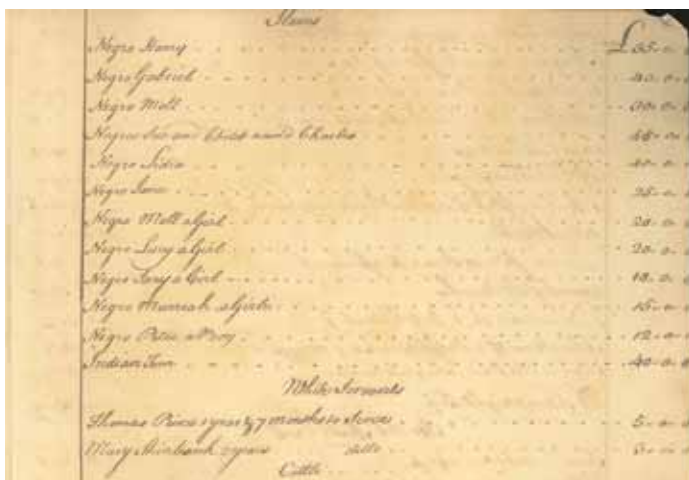 Slaves
Negro Harry £35-0-0
Negro Gabriel 40-0-0
Negro Moll 30-0-0
Negro and Child named Charles 45-0-0
Negro 40-0-0
Negro 25-0-0
Negro Moll a Girl 20-0-0
Negro Lucy a Girl 20-0-0
Negro a Girl 18-0-0
Negro a Girl 15-0-0
Negro Peter a Boy 12-0-0
Indian 40-0-0
White Servants
Thomas 1 year & 7 months to Serve 5-0-0
Mary 2 years ditto 3-0-0
Cattle